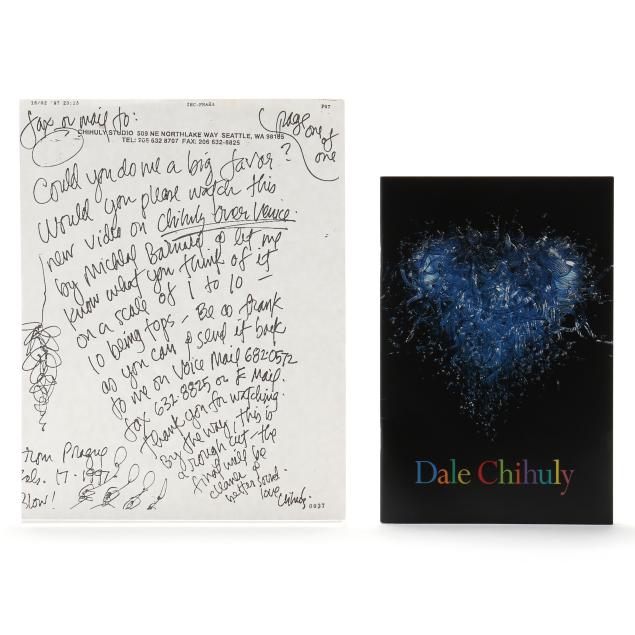 16/02 '97 20:13 IHC-PRAHA P07
fax or mail to:
page one of one
CHIHULY STUDIO 509 NE NORTHLAKE WAY SEATTLE, WA 98105
TEL: 206 632 8707 FAX: 206 632-8825
Could you do me a big favor?
Would you please watch this
new video on Chihuly Over Venice
by Michael Barnard & let me
know what you think of it
on a scale of 1 to 10 –
10 being tops – Be as frank
as you can & send it back
to me on Voice Mail 682-0572
fax 632-8825 or E Mail.
Thank you for watching.
By the way, this is
a rough cut – the
final will be
cleaner &
better sound.
love Chihuly.
from Prague
17-1997
Blow!
0037
Dale Chihuly